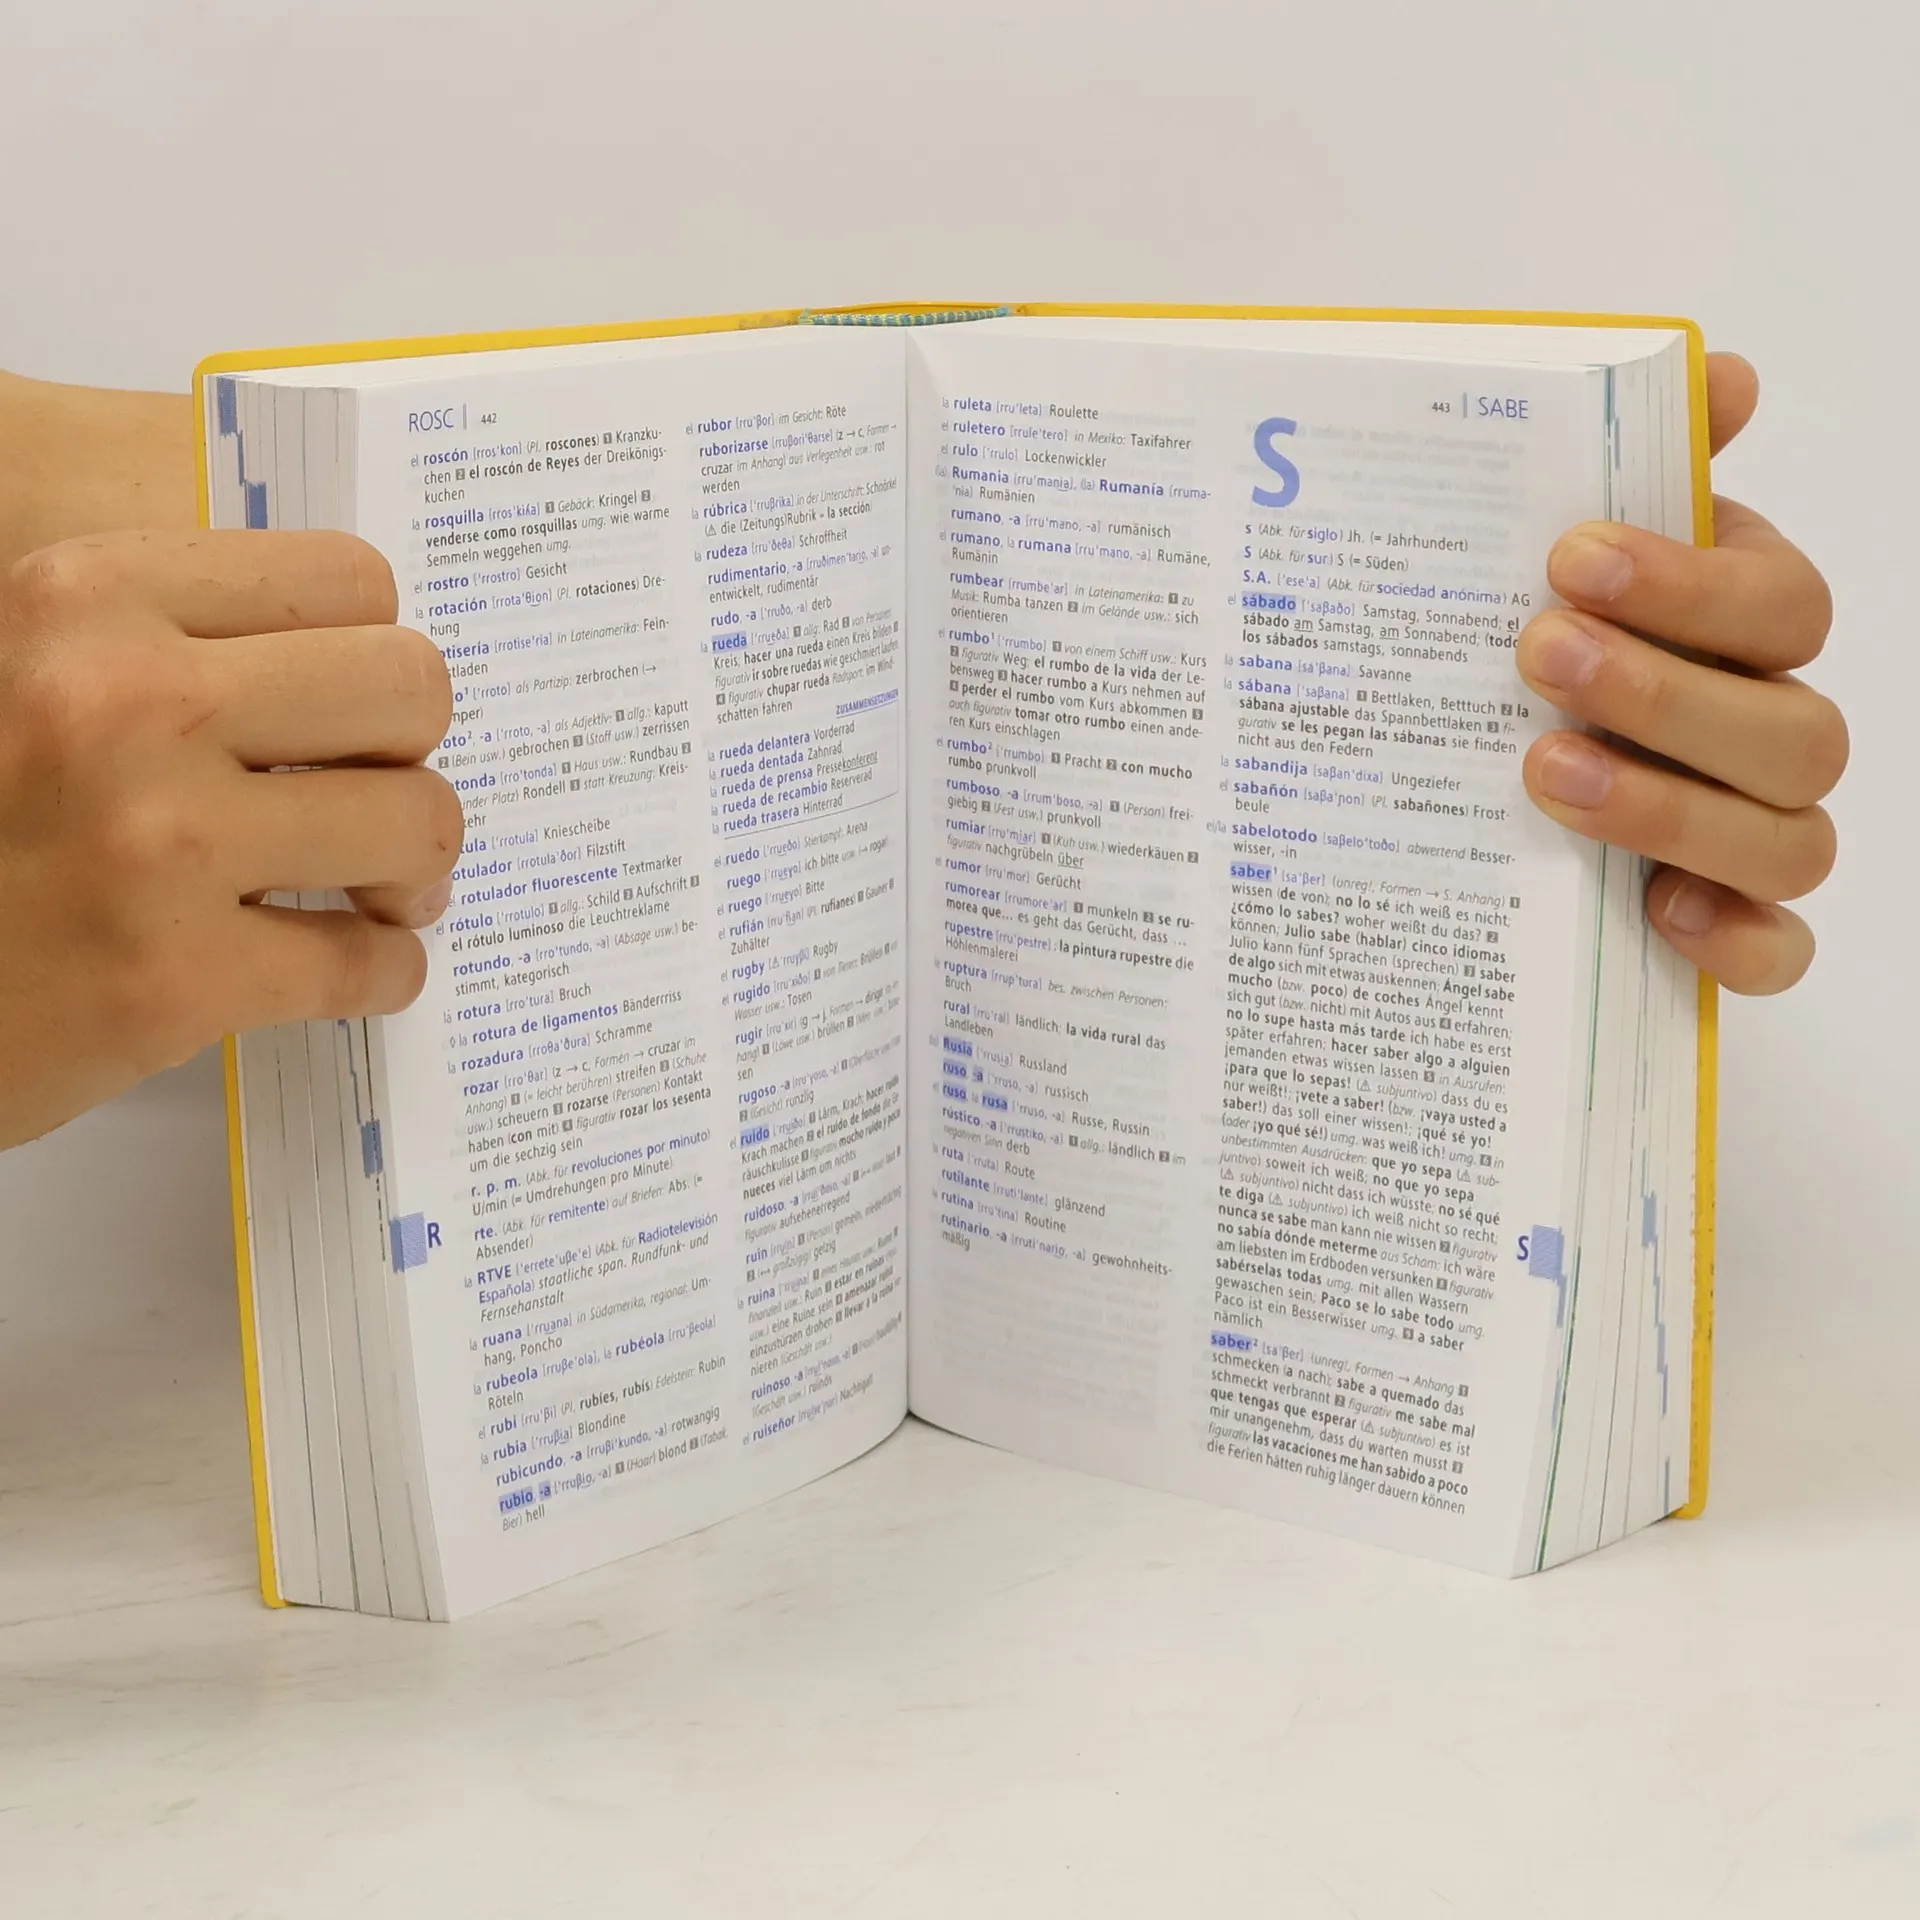 ROSC | 442
el roscón [rrosˈkon] (Pl. roscones) 1 Kranzku-
chen 2 el roscón de Reyes der Dreikönigs-
kuchen
la rosquilla [rrosˈkiʎa] 1 Gebäck: Kringel 2
venderse como rosquillas umg. wie warme
Semmeln weggehen umg.
el rostro [ˈrrostro] Gesicht
la rotación [rrotaˈθi̯on] (Pl. rotaciones) Dre-
hung
otisería [rrotiseˈria] in Lateinamerika: Fein-
stladen
o¹ [ˈrroto] als Partizip: zerbrochen (→
mper)
oto², -a [ˈrroto, -a] als Adjektiv: 1 allg.: kaputt
2 (Bein usw.) gebrochen 3 (Stoff usw.) zerrissen
otonda [rroˈtonda] 1 Haus usw.: Rundbau 2
under Platz) Rondell 3 statt Kreuzung: Kreis-
kehr
tula [ˈrrotula] Kniescheibe
otulador [rrotulaˈðor] Filzstift
el rotulador fluorescente Textmarker
el rótulo [ˈrrotulo] 1 allg.: Schild 2 Aufschrift 3
el rótulo luminoso die Leuchtreklame
rotundo, -a [rroˈtundo, -a] (Absage usw.) be-
stimmt, kategorisch
la rotura [rroˈtura] Bruch
la rotura de ligamentos Bänderriss
la rozadura [rroθaˈðura] Schramme
rozar [rroˈθar] (z → c, Formen → cruzar im
Anhang) 1 (= leicht berühren) streifen 2 (Schuhe
usw.) scheuern 3 rozarse (Personen) Kontakt
haben (con mit) 4 figurativ rozar los sesenta
um die sechzig sein
r. p. m. (Abk. für revoluciones por minuto)
U/min (= Umdrehungen pro Minute)
rte. (Abk. für remitente) auf Briefen: Abs. (=
Absender)
R
la RTVE [ˈerreteˈuβeˈe] (Abk. für Radiotelevisión
Española) staatliche span. Rundfunk- und
Fernsehanstalt
la ruana [ˈrru̯ana] in Südamerika, regional: Um-
hang, Poncho
la rubeola [rruβeˈola], la rubéola [rruˈβeola]
Röteln
el rubí [rruˈβi] (Pl. rubíes, rubís) Edelstein: Rubin
la rubia [ˈrruβi̯a] Blondine
rubicundo, -a [rruβiˈkundo, -a] rotwangig
rubio, -a [ˈrruβi̯o, -a] 1 (Haar) blond 2 (Tabak,
Bier) hell
el rubor [rruˈβor] im Gesicht: Röte
ruborizarse [rruβoriˈθarse] (z → c, Formen →
cruzar im Anhang) aus Verlegenheit usw.: rot
werden
la rúbrica [ˈrruβrika] in der Unterschrift: Schnörkel
(⚠ die (Zeitungs)Rubrik = la sección)
la rudeza [rruˈðeθa] Schroffheit
rudimentario, -a [rruðimenˈtari̯o, -a] un-
entwickelt, rudimentär
rudo, -a [ˈrruðo, -a] derb
la rueda [ˈrru̯eða] 1 allg.: Rad 2 von Personen:
Kreis; hacer una rueda einen Kreis bilden 3
figurativ ir sobre ruedas wie geschmiert laufen
4 figurativ chupar rueda Radsport: im Wind-
schatten fahren
ZUSAMMENSETZUNGEN
la rueda delantera Vorderrad
la rueda dentada Zahnrad
la rueda de prensa Pressekonferenz
la rueda de recambio Reserverad
la rueda trasera Hinterrad
el ruedo [ˈrru̯eðo] Stierkampf: Arena
ruego [ˈrru̯eɣo] ich bitte usw. (→ rogar)
el ruego [ˈrru̯eɣo] Bitte
el rufián [rruˈfi̯an] (Pl. rufianes) 1 Gauner 2
Zuhälter
el rugby [⚠ ˈrruɣβi] Rugby
el rugido [rruˈxiðo] 1 von Tieren: Brüllen 2 von
Wasser usw.: Tosen
rugir [rruˈxir] (g → j, Formen → dirigir im An-
hang) 1 (Löwe usw.) brüllen 2 (Meer usw.)
sen
rugoso, -a [rruˈɣoso, -a] 1 (Oberfläche usw.)
2 (Gesicht) runzlig
el ruido [ˈrru̯iðo] 1 Lärm, Krach; hacer ruido
Krach machen 2 el ruido de fondo die Ge-
räuschkulisse 3 figurativ mucho ruido y pocas
nueces viel Lärm um nichts
ruidoso, -a [rru̯iˈðoso, -a] 1 laut 2
figurativ aufsehenerregend
ruin [rru̯in] 1 (Person) gemein, niederträchtig
2 (↔ großzügig) geizig
la ruina [ˈrru̯ina] 1 eines Hauses usw.: Ruine 2
finanziell usw.: Ruin 3 estar en ruinas
usw.) eine Ruine sein 4 amenazar ruina
einzustürzen drohen 5 llevar a la ruina
nieren (Geschäft usw.)
ruinoso, -a [rru̯iˈnoso, -a] 1 (Haus) baufällig 2
(Geschäft usw.) ruinös
el ruiseñor [rru̯iseˈɲor] Nachtigall
443 | SABE
la ruleta [rruˈleta] Roulette
el ruletero [rruleˈtero] in Mexiko: Taxifahrer
el rulo [ˈrrulo] Lockenwickler
(la) Rumania [rruˈmani̯a], (la) Rumanía [rruma-
ˈnia] Rumänien
rumano, -a [rruˈmano, -a] rumänisch
el rumano, la rumana [rruˈmano, -a] Rumäne,
Rumänin
rumbear [rrumbeˈar] in Lateinamerika: 1 zu
Musik: Rumba tanzen 2 im Gelände usw.: sich
orientieren
el rumbo¹ [ˈrrumbo] 1 von einem Schiff usw.: Kurs
2 figurativ Weg; el rumbo de la vida der Le-
bensweg 3 hacer rumbo a Kurs nehmen auf
4 perder el rumbo vom Kurs abkommen 5
auch figurativ tomar otro rumbo einen ande-
ren Kurs einschlagen
el rumbo² [ˈrrumbo] 1 Pracht 2 con mucho
rumbo prunkvoll
rumboso, -a [rrumˈboso, -a] 1 (Person) frei-
giebig 2 (Fest usw.) prunkvoll
rumiar [rruˈmi̯ar] 1 (Kuh usw.) wiederkäuen 2
figurativ nachgrübeln über
el rumor [rruˈmor] Gerücht
rumorear [rrumoreˈar] 1 munkeln 2 se ru-
morea que… es geht das Gerücht, dass …
rupestre [rruˈpestre]: la pintura rupestre die
Höhlenmalerei
la ruptura [rrupˈtura] bes. zwischen Personen:
Bruch
rural [rruˈral] ländlich; la vida rural das
Landleben
(la) Rusia [ˈrrusi̯a] Russland
ruso, -a [ˈrruso, -a] russisch
el ruso, la rusa [ˈrruso, -a] Russe, Russin
rústico, -a [ˈrrustiko, -a] 1 allg.: ländlich 2 im
negativen Sinn derb
la ruta [ˈrruta] Route
rutilante [rrutiˈlante] glänzend
la rutina [rruˈtina] Routine
rutinario, -a [rrutiˈnari̯o, -a] gewohnheits-
mäßig
S
s (Abk. für siglo) Jh. (= Jahrhundert)
S (Abk. für sur) S (= Süden)
S.A. [ˈeseˈa] (Abk. für sociedad anónima) AG
el sábado [ˈsaβaðo] Samstag, Sonnabend; el
sábado am Samstag, am Sonnabend; (todo
los sábados samstags, sonnabends
la sabana [saˈβana] Savanne
la sábana [ˈsaβana] 1 Bettlaken, Betttuch 2 la
sábana ajustable das Spannbettlaken 3 fi-
gurativ se les pegan las sábanas sie finden
nicht aus den Federn
la sabandija [saβanˈdixa] Ungeziefer
el sabañón [saβaˈɲon] (Pl. sabañones) Frost-
beule
el/la sabelotodo [saβeloˈtoðo] abwertend Besser-
wisser, -in
saber¹ [saˈβer] (unregl., Formen → S. Anhang) 1
wissen (de von); no lo sé ich weiß es nicht;
¿cómo lo sabes? woher weißt du das? 2
können; Julio sabe (hablar) cinco idiomas
Julio kann fünf Sprachen (sprechen) 3 saber
de algo sich mit etwas auskennen; Ángel sabe
mucho (bzw. poco) de coches Ángel kennt
sich gut (bzw. nicht) mit Autos aus 4 erfahren;
no lo supe hasta más tarde ich habe es erst
später erfahren; hacer saber algo a alguien
jemanden etwas wissen lassen 5 in Ausrufen:
¡para que lo sepas! (⚠ subjuntivo) dass du es
nur weißt!; ¡vete a saber! (bzw. ¡vaya usted a
saber!) das soll einer wissen!; ¡qué sé yo!
(oder ¡yo qué sé!) umg. was weiß ich! umg. 6 in
unbestimmten Ausdrücken: que yo sepa (⚠ sub-
juntivo) soweit ich weiß; no que yo sepa
(⚠ subjuntivo) nicht dass ich wüsste; no sé qué
te diga (⚠ subjuntivo) ich weiß nicht so recht;
nunca se sabe man kann nie wissen 7 figurativ
no sabía dónde meterme aus Scham: ich wäre
am liebsten im Erdboden versunken 8 figurativ
sabérselas todas umg. mit allen Wassern
gewaschen sein; Paco se lo sabe todo umg.
Paco ist ein Besserwisser umg. 9 a saber
nämlich
S
saber² [saˈβer] (unregl., Formen → Anhang 1
schmecken (a nach); sabe a quemado das
schmeckt verbrannt 2 figurativ me sabe mal
que tengas que esperar (⚠ subjuntivo) es ist
mir unangenehm, dass du warten musst 3
figurativ las vacaciones me han sabido a poco
die Ferien hätten ruhig länger dauern können